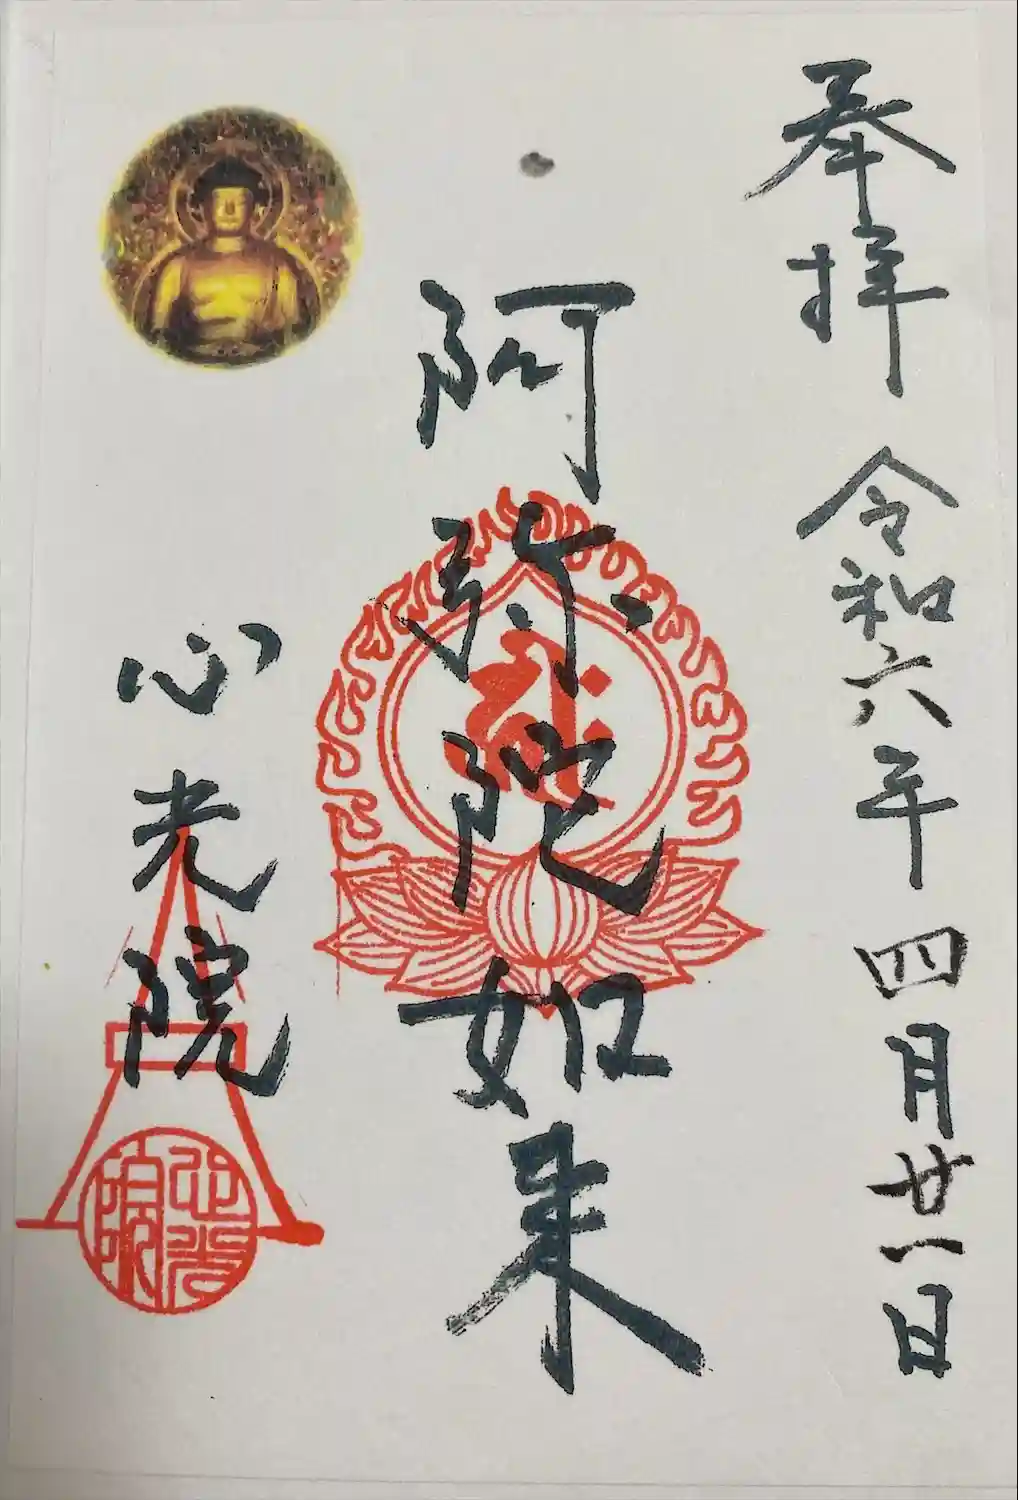 奉拝 令和六年四月廿一日
阿弥陀如来
心光院
心光院